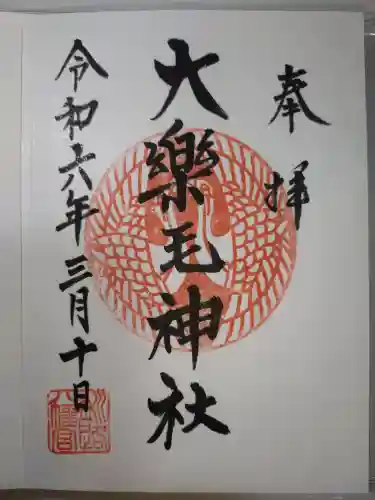 奉拝
大樂毛神社
令和六年三月十日